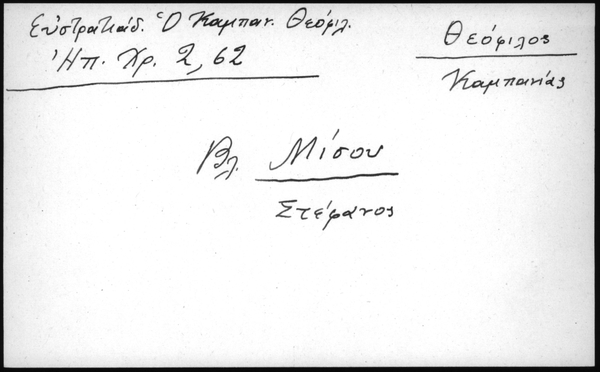 Εὐστρατιάδ. Ὁ Καμπαν. Θεόφιλ.
Ἠπ. Χρ. 2, 62
Θεόφιλος
Καμπανίας
Βλ. Μίσου
Στέφανος